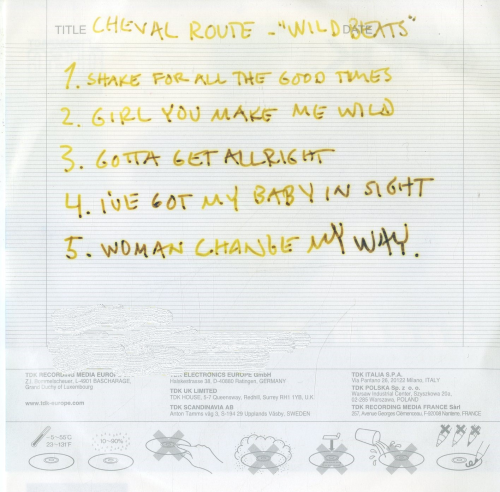 TITLE CHEVAL ROUTE - "WILD BEATS" DATE
1. SHAKE FOR ALL THE GOOD TIMES
2. GIRL YOU MAKE ME WILD
3. GOTTA GET ALLRIGHT
4. I'VE GOT MY BABY IN SIGHT
5. WOMAN CHANGE MY WAY.
TDK RECORDING MEDIA EURO
L-4901 BASCHARAGE,
Grand Duchy of Luxembourg
www.tdk-europe.com
ELECTRONICS EUROPE GmbH
38, D-40880 Ratingen, GERMANY
TDK UK LIMITED
TDK HOUSE, 5-7 Queensway, Redhill, Surrey RH1 1YB, U.K.
TDK SCANDINAVIA AB
Anton Tamms väg 3, S-194 29 Upplands Väsby, SWEDEN
TDK ITALIA S.P.A.
20123 Milano, ITALY
TDK POLSKA Sp. z o.o.
Warsaw Industrial Center,
02-285 Warszawa, POLAND
TDK RECORDING MEDIA FRANCE Sàrl
Avenue Georges Clémenceau, Nanterre, FRANCE
-5~55°C
23~131°F
10~90%